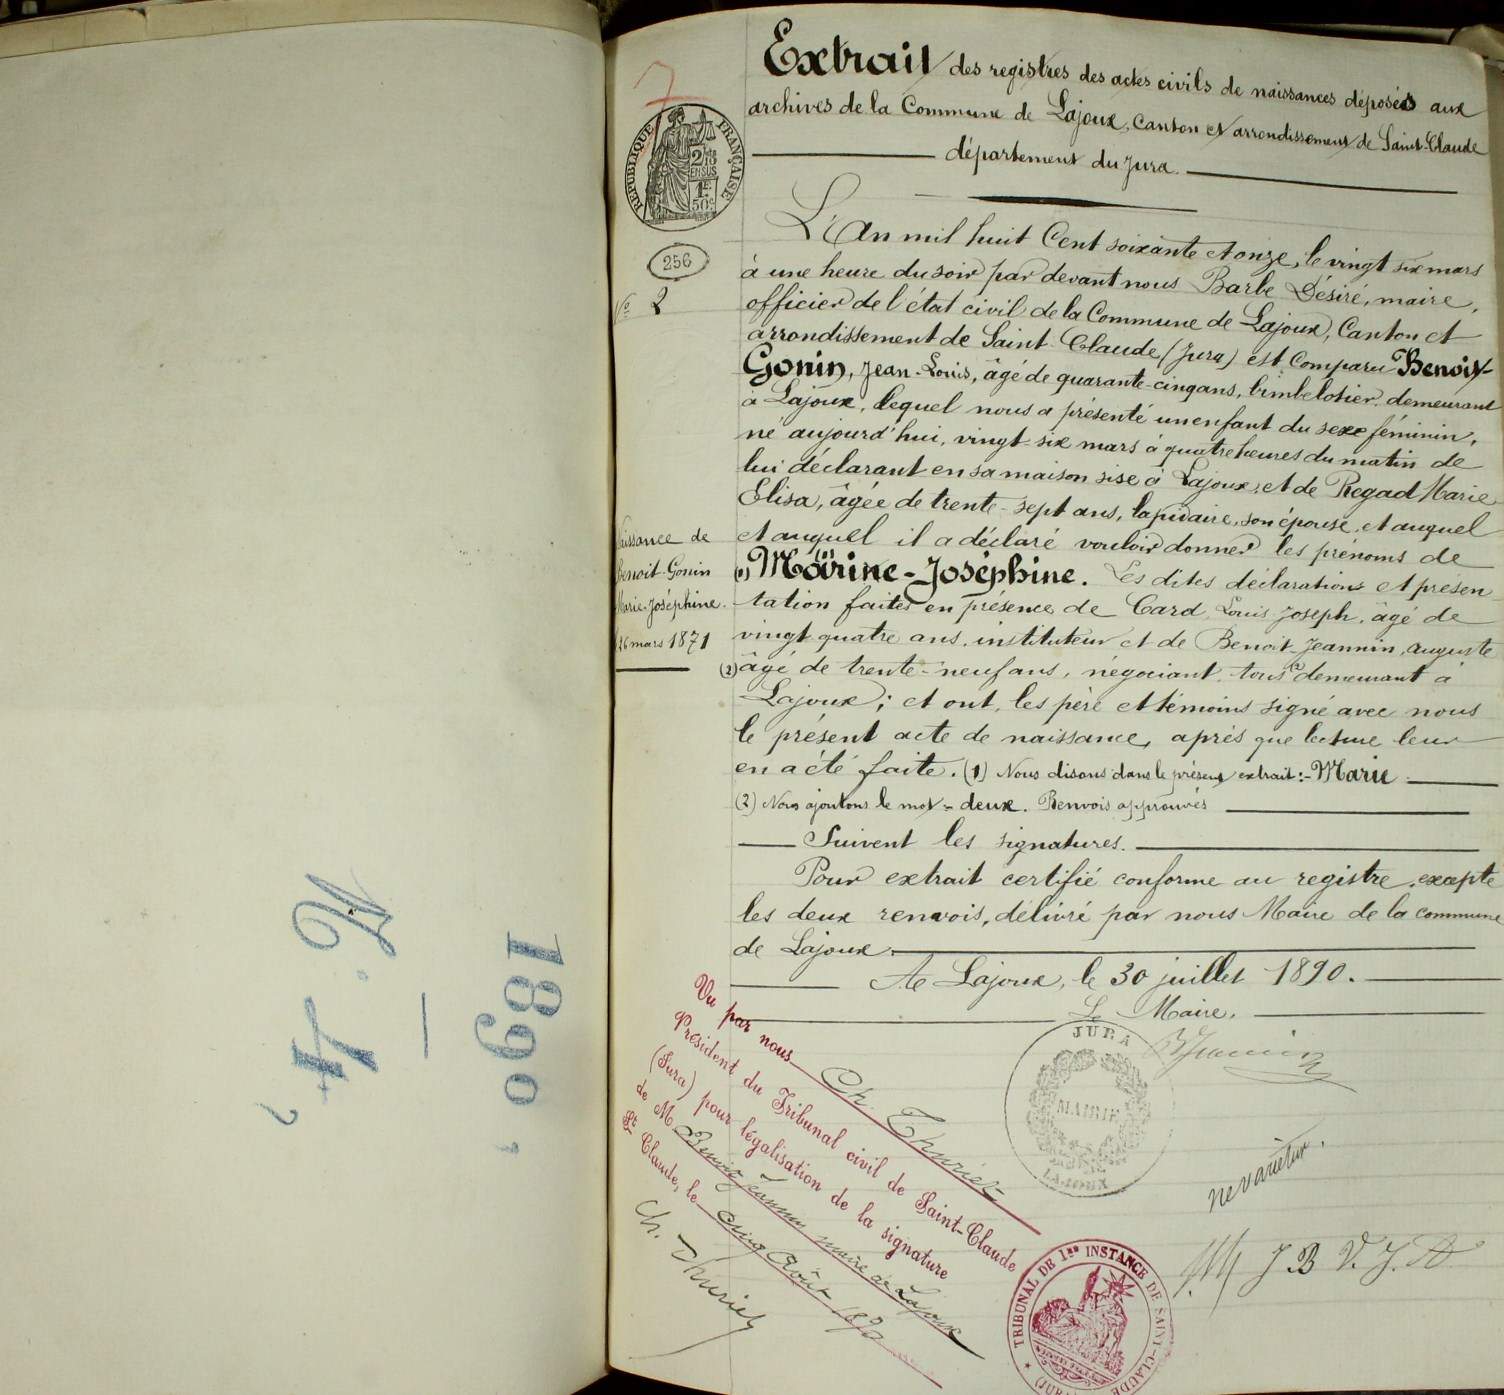 Extrait des registres des actes civils de naissances déposés aux
archives de la Commune de Lajoux, canton et arrondissement de Saint-Claude
département du Jura.
RÉPUBLIQUE FRANÇAISE
2/10 EN SUS
1F. 50c.
256
No 2
L'An mil huit Cent soixante et onze, le vingt six mars
à une heure du soir par devant nous Barbe Désiré, maire,
officier de l'état civil de la Commune de Lajoux, Canton et
arrondissement de Saint-Claude (Jura) est Comparu Benoit
Gonin, Jean-Louis, âgé de quarante-cinq ans, bimbelotier, demeurant
à Lajoux, lequel nous a présenté un enfant du sexe féminin,
né aujourd'hui, vingt-six mars à quatre heures du matin de
lui déclarant en sa maison sise à Lajoux, et de Regad Marie
Elisa, âgée de trente-sept ans, lapidaire, son épouse, et auquel
et auquel il a déclaré vouloir donner les prénoms de
(1) Marine-Joséphine. Les dites déclarations et présen-
tation faites en présence de Card, Louis Joseph, âgé de
vingt quatre ans, instituteur et de Benoit-Jeannin, auguste
(2) âgé de trente-neuf ans, négociant, tous (2) demeurant à
Lajoux; et ont, les père et témoins signé avec nous
le présent acte de naissance, après que lecture leur
en a été faite. (1) Nous disons dans le présent extrait:- Marie
(2) Nous ajoutons le mot - deux. Renvois approuvés
Suivent les signatures.
Pour extrait certifié conforme au registre, excepté
les deux renvois, délivré par nous Maire de la commune
de Lajoux.
A Lajoux, le 30 juillet 1890.
Le Maire,
Naissance de
Benoit-Gonin
Marie-Joséphine.
26 mars 1871
JURA
MAIRIE
LAJOUX
Vu par nous Ch. Thuriet
Président du Tribunal civil de Saint-Claude
(Jura) pour légalisation de la signature
de M Benoit Jeannin maire de Lajoux
St Claude, le cinq Août 1890
Ch. Thuriet
TRIBUNAL DE 1re INSTANCE DE SAINT-CLAUDE (JURA)
ne varietur.
J B V. J. A
1890